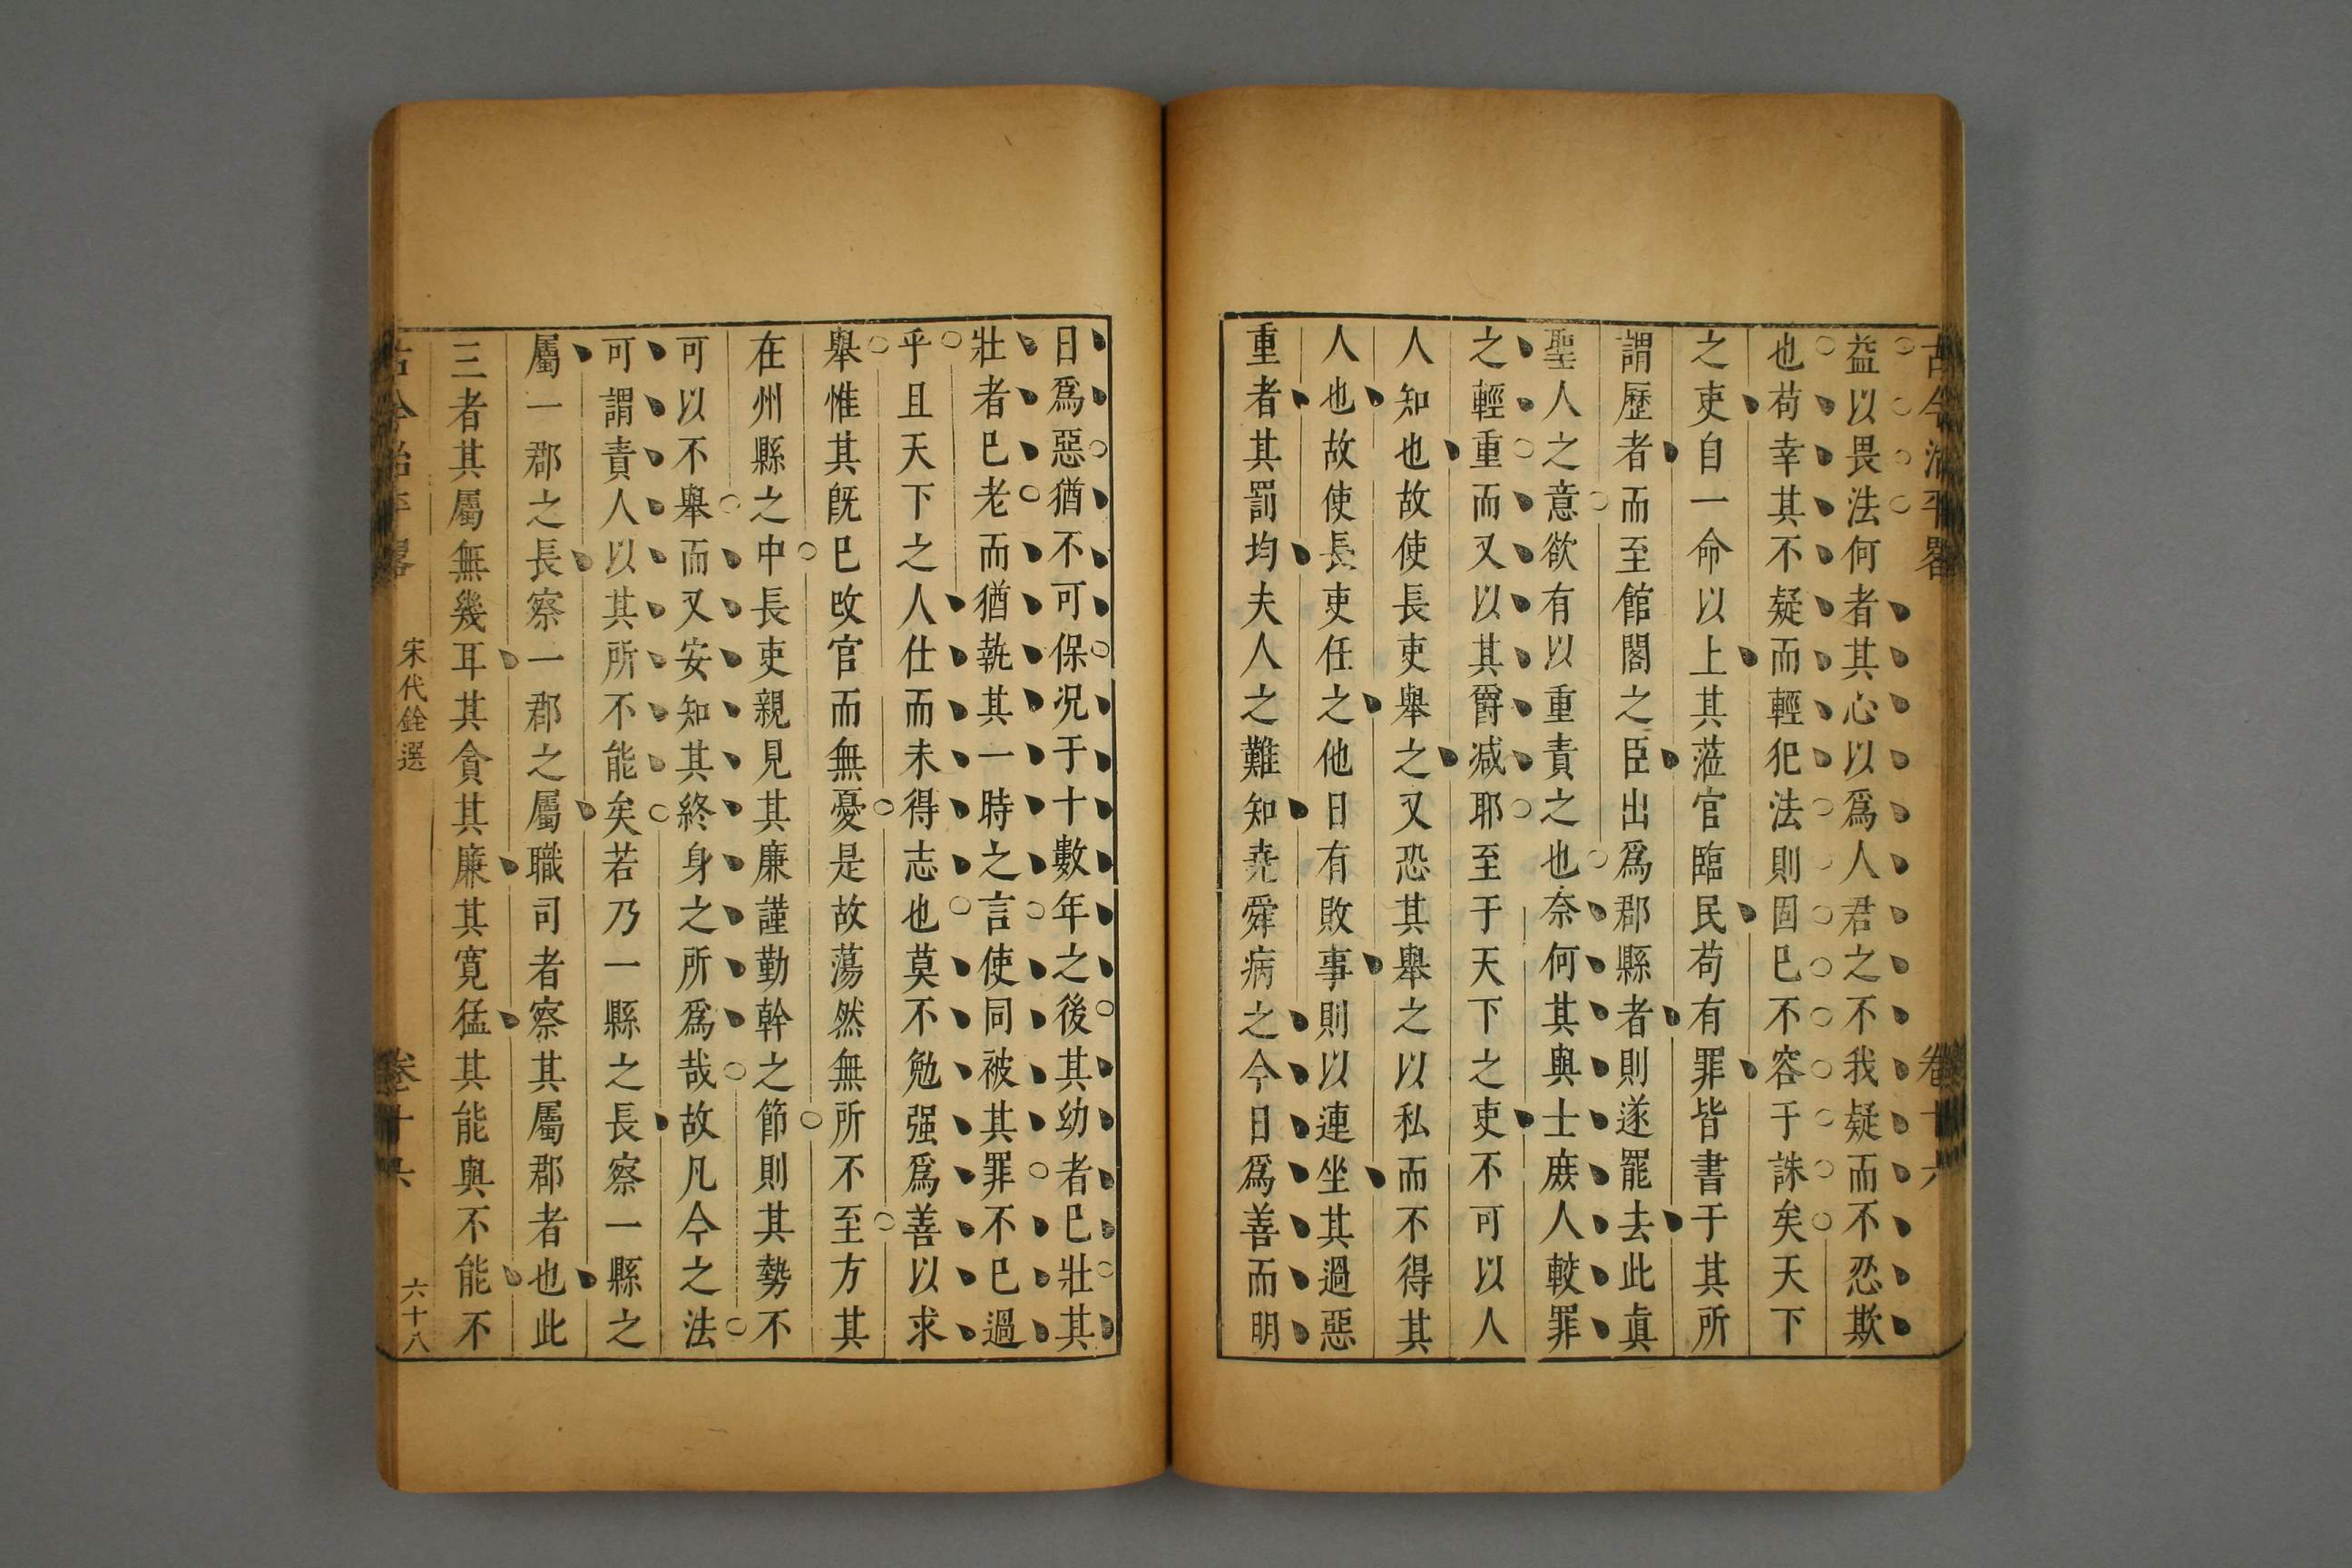 古今治平畧 卷十六
益以畏法何者其心以爲人君之不我疑而不忍欺
也苟幸其不疑而輕犯法則固已不容于誅矣天下
之吏自一命以上其蒞官臨民苟有罪皆書于其所
謂歷者而至館閣之臣出爲郡縣者則遂罷去此眞
聖人之意欲有以重責之也奈何其與士庻人較罪
之輕重而又以其爵减耶至于天下之吏不可以人
人知也故使長吏舉之又恐其舉之以私而不得其
人也故使長吏任之他日有敗事則以連坐其過惡
重者其罰均夫人之難知堯舜病之今日爲善而明
日爲惡猶不可保况于十數年之後其幼者已壯其
壯者已老而猶執其一時之言使同被其罪不已過
乎且天下之人仕而未得志也莫不勉强爲善以求
舉惟其旣已改官而無憂是故蕩然無所不至方其
在州縣之中長吏親見其廉謹勤幹之節則其勢不
可以不舉而又安知其終身之所爲哉故凡今之法
可謂責人以其所不能矣若乃一縣之長察一縣之
屬一郡之長察一郡之屬職司者察其屬郡者也此
三者其屬無幾耳其貪其廉其寛猛其能與不能不
古今治平畧 宋代銓選 卷十六 六十八